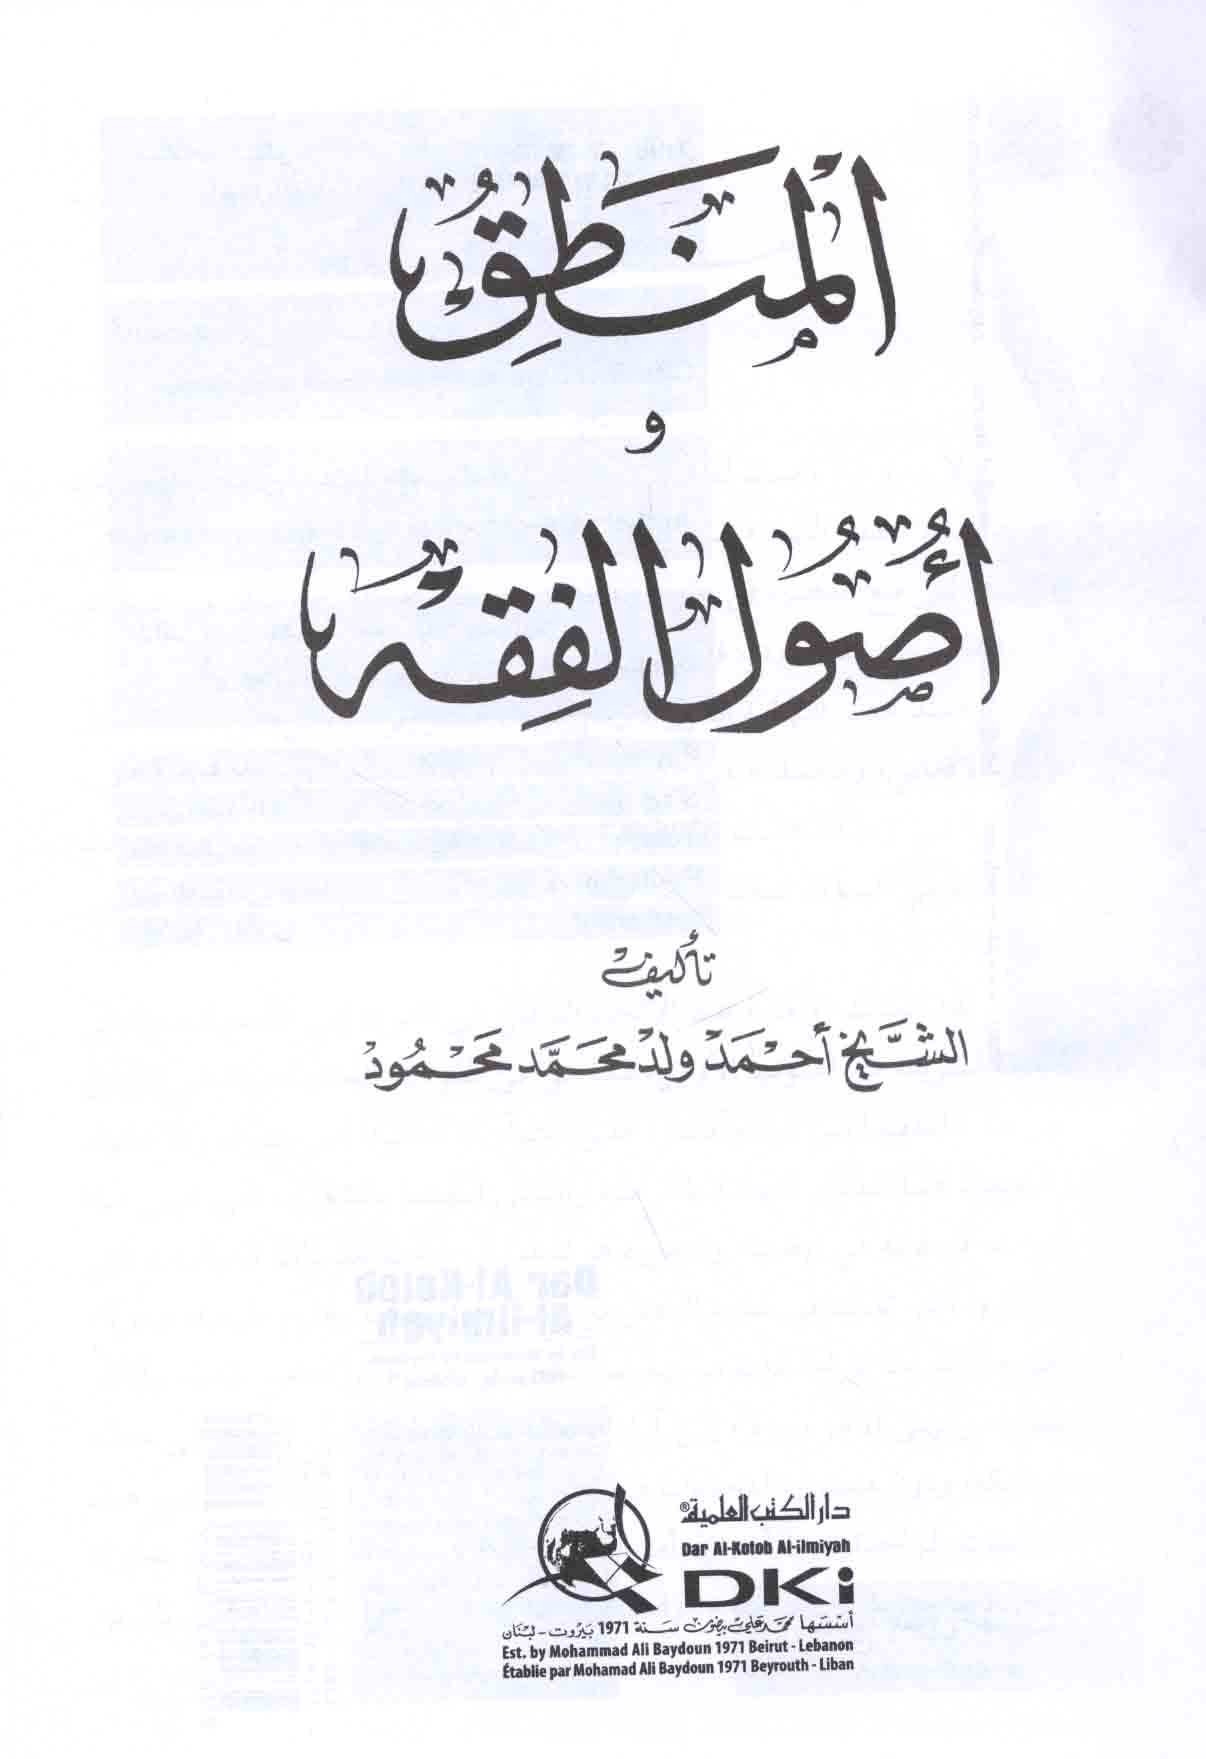 المنطق
و
أصول الفقه
تأليف
الشيخ أحمد ولد محمد محمود
دار الكتب العلمية®
Dar Al-Kotob Al-ilmiyah
DKi
أسسها محمد علي بيضون سنة 1971 بيروت - لبنان
Est. by Mohammad Ali Baydoun 1971 Beirut - Lebanon
Établie par Mohamad Ali Baydoun 1971 Beyrouth - Liban